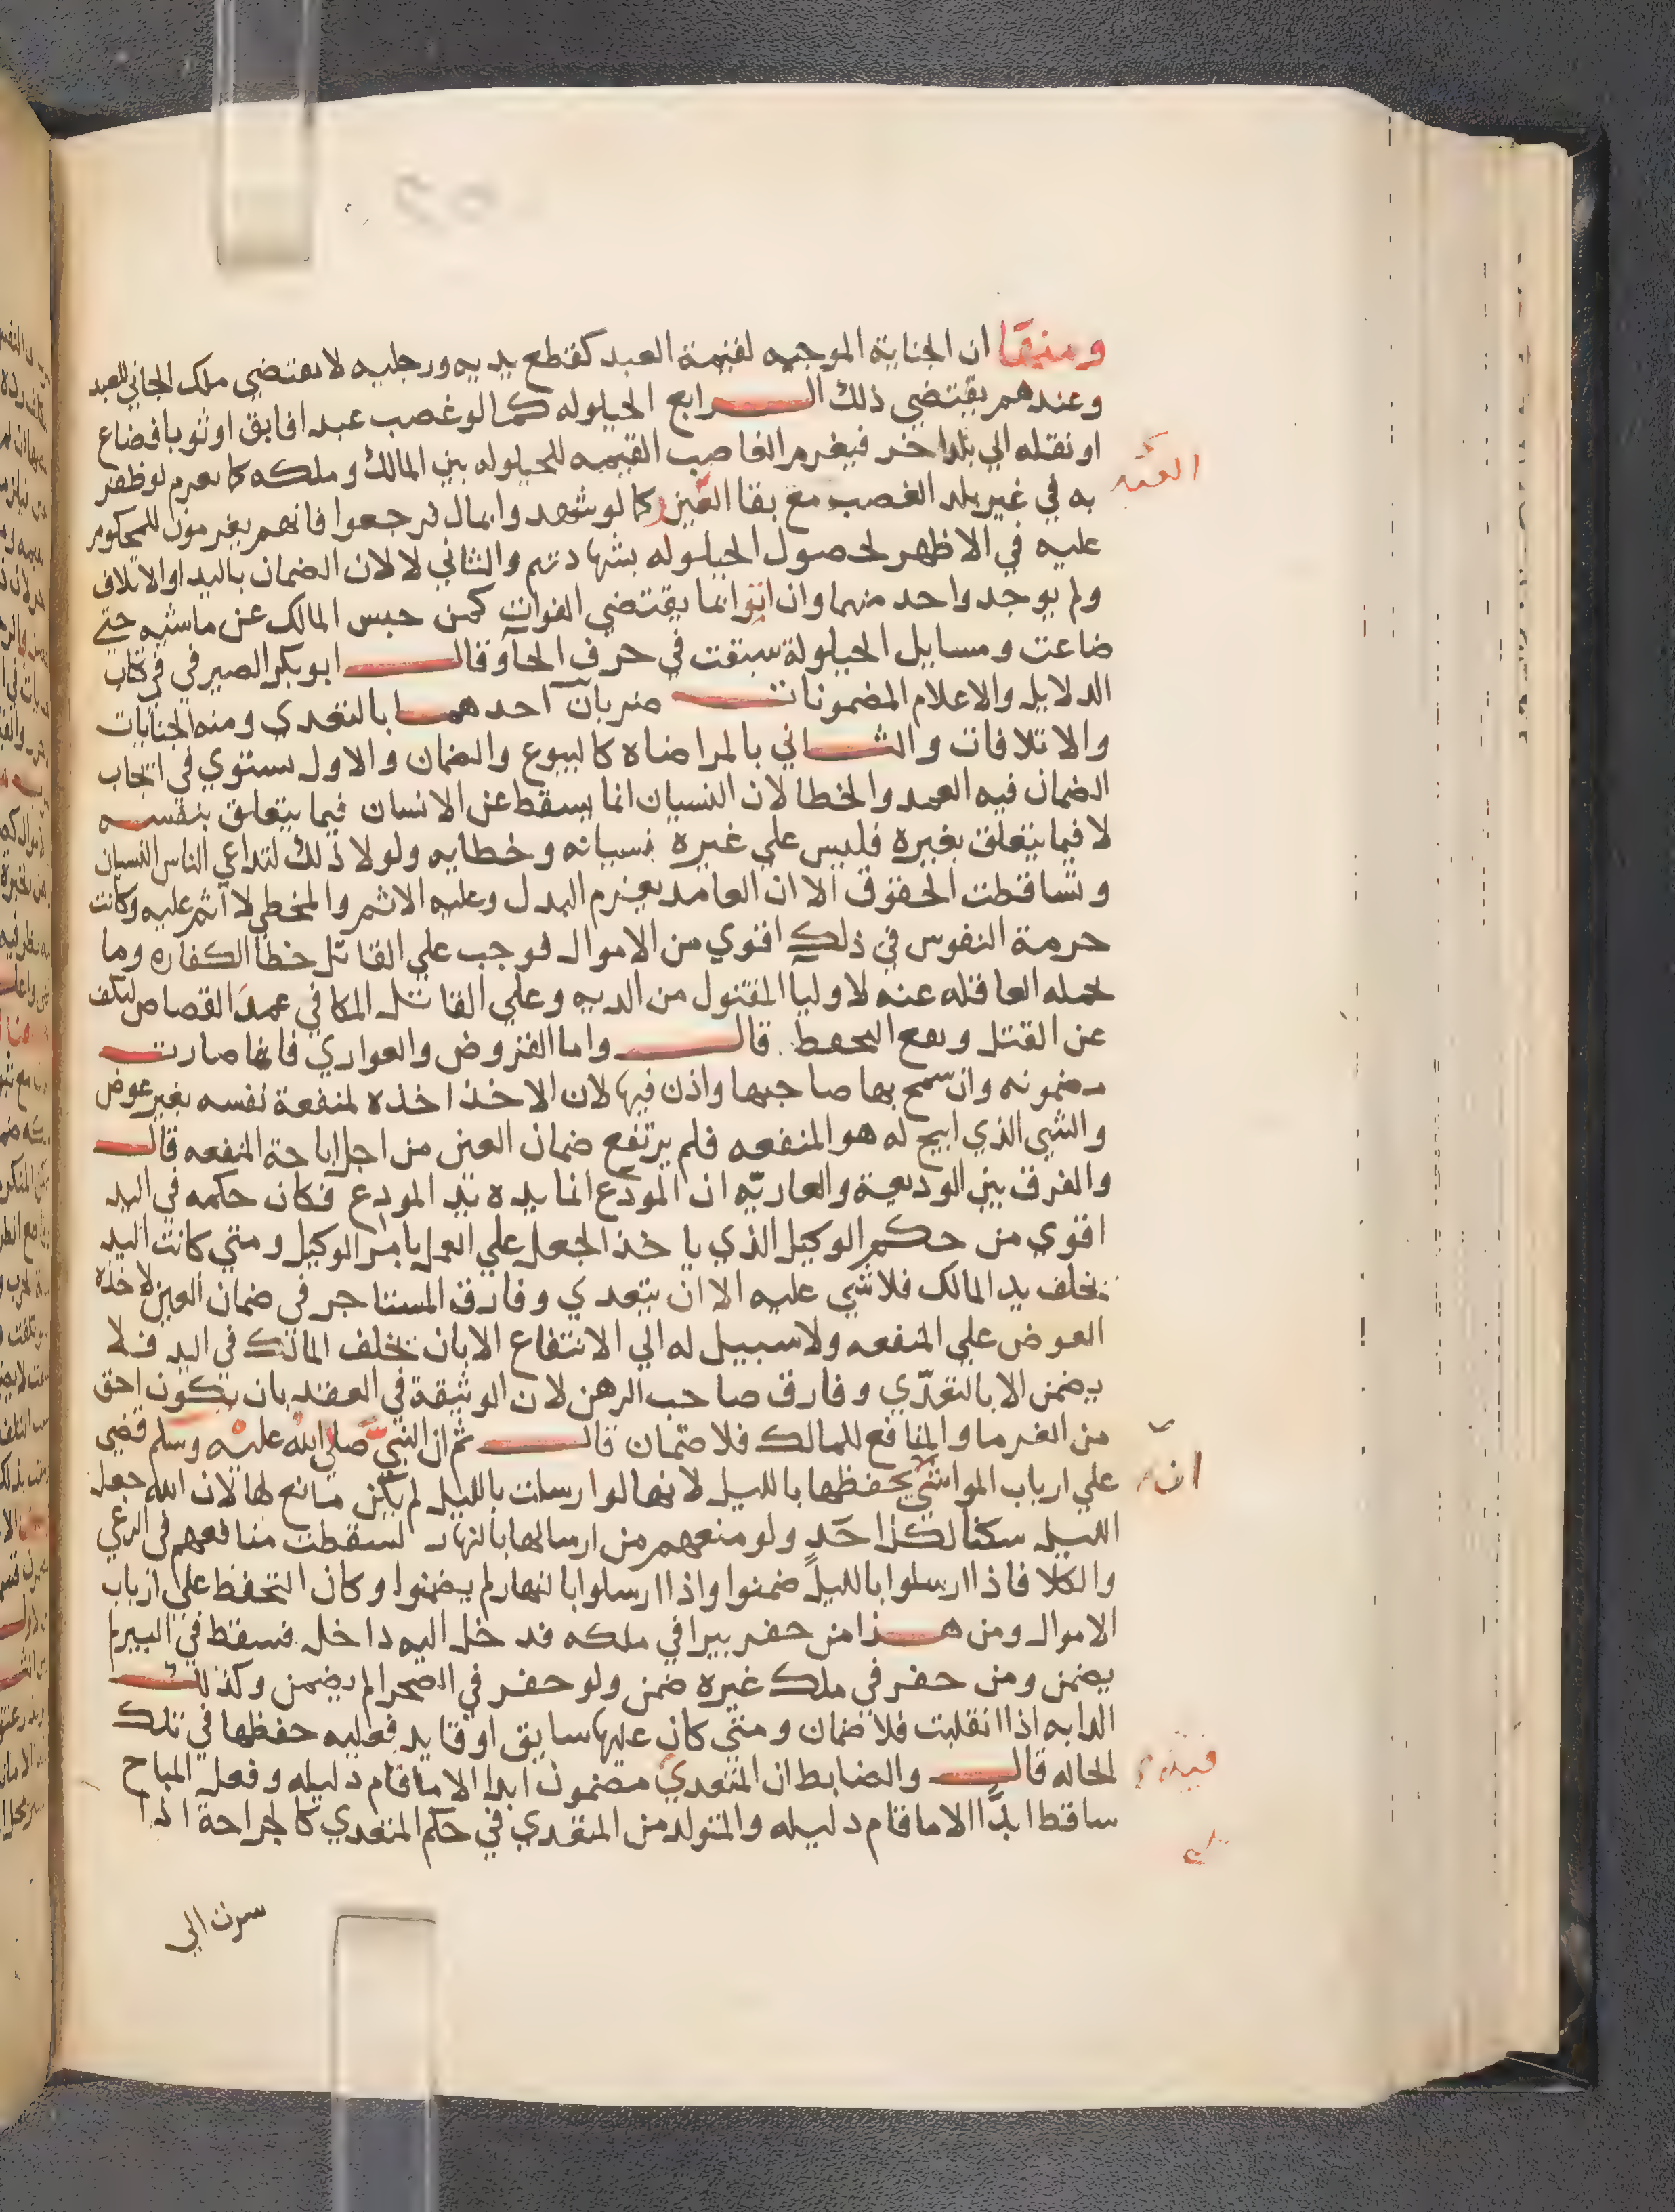 ومنها ان الجناية الموجبه لقيمة العبد كقطع يديه ورجليه لا يقتضي ملك الجاني للعبد
وعندهم يقتضي ذلك الرابع الحيلوله كما لو غصب عبدا فابق او ثوبا فضاع
او نقله الي بلد اخر فيغرم الغاصب القيمه للحيلوله بين المالك وملكه كما يغرم لو ظفر
به في غير بلد الغصب مع بقا العين وكما لو شهدوا بمال ثم رجعوا فانهم يغرمون للمحكوم
عليه في الاظهر لحصول الحيلوله بشهادتهم والثاني لا لان الضمان باليد او الاتلاف
ولم يوجد واحد منهما وان اتوا بما يقتضي الفوات كمن حبس المالك عن ماشيه حتي
ضاعت ومسايل الحيلولة سبقت في حرف الحآ وقال ابو بكر الصيرفي في كتاب
الدلايل والاعلام المضمونات ضربان احدهما بالتعدي ومنه الجنايات
والاتلافات والثاني بالمراضاه كالبيوع والضمان والاول يستوي في ايجاب
الضمان فيه العمد والخطا لان النسيان انما يسقط عن الانسان فيما يتعلق بنفسه
لا فيما يتعلق بغيره فليس علي غيره نسيانه وخطايه ولولا ذلك لتداعي الناس النسيان
وتساقطت الحقوق الا ان العامد يغرم البدل وعليه الاثم والمخطي لا اثم عليه وكانت
حرمة النفوس في ذلك اقوي من الاموال فوجب علي القاتل خطا الكفاره وما
تحمله العاقله عنه لاوليا المقتول من الديه وعلي القاتل المكافي عمدا القصاص ليكف
عن القتل ويقع التحفظ قال واما القروض والعواري فانما صارت
مضمونه وان سمح بها صاحبها واذن فيها لان الاخذ اخذه لمنفعة نفسه بغير عوض
والشي الذي ابيح له هو المنفعه فلم يرتفع ضمان العين من اجل اباحة المنفعه قال
والفرق بين الوديعة والعاريّه ان المودَع انما يده يد المودِع فكان حكمه في اليد
اقوي من حكم الوكيل الذي ياخذ الجعل علي العمل بامر الوكيل ومتي كانت اليد
تخلف يد المالك فلا شي عليه الا ان يتعدي وفارق المستاجر في ضمان العين لاخذه
العوض علي المنفعه ولا سبيل له الي الانتفاع الا بان تخلف المالك في اليد فلا
يضمن الا بالتعدّي وفارق صاحب الرهن لان الوثيقة في العقد بان يكون احق
من الغرما والمنافع للمالك فلا ضمان قال ثم ان النبي صلي الله عليه وسلم قضي
علي ارباب المواشي بحفظها بالليل لانها لو ارسلت بالليل لم يكن مانع لها لان الله جعل
الليل سكنا لكل احد ولو منعهم من ارسالها بالنهار لسقطت منافعهم في الرعي
والكلا فاذا ارسلوا بالليل ضمنوا واذا ارسلوا بالنهار لم يضمنوا وكان التحفظ علي ارباب
الاموال ومن هذا من حفر بيرا في ملكه فدخل اليه داخل فسقط في البير لم
يضمن ومن حفر في ملك غيره ضمن ولو حفر في الصحرا لم يضمن وكذلك
الدابه اذا انفلتت فلا ضمان ومتي كان عليها سايق او قايد فعليه حفظها في تلك
الحاله قال والضابط ان المتعدي مضمون ابدا الا ما قام دليله وفعل المباح
ساقط ابدًا الا ما قام دليله والمتولد من المتعدي في حكم المتعدي كالجراحة اذا
سرت الي
ان